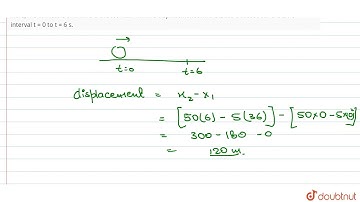 interval t = 0 to t = 6 s.
t=0 t=6
displacement = x₂-x₁
= [50(6) - 5(36)] - [50×0-5×0²]
= 300 - 180 - 0
= 120 m.
doubtnut